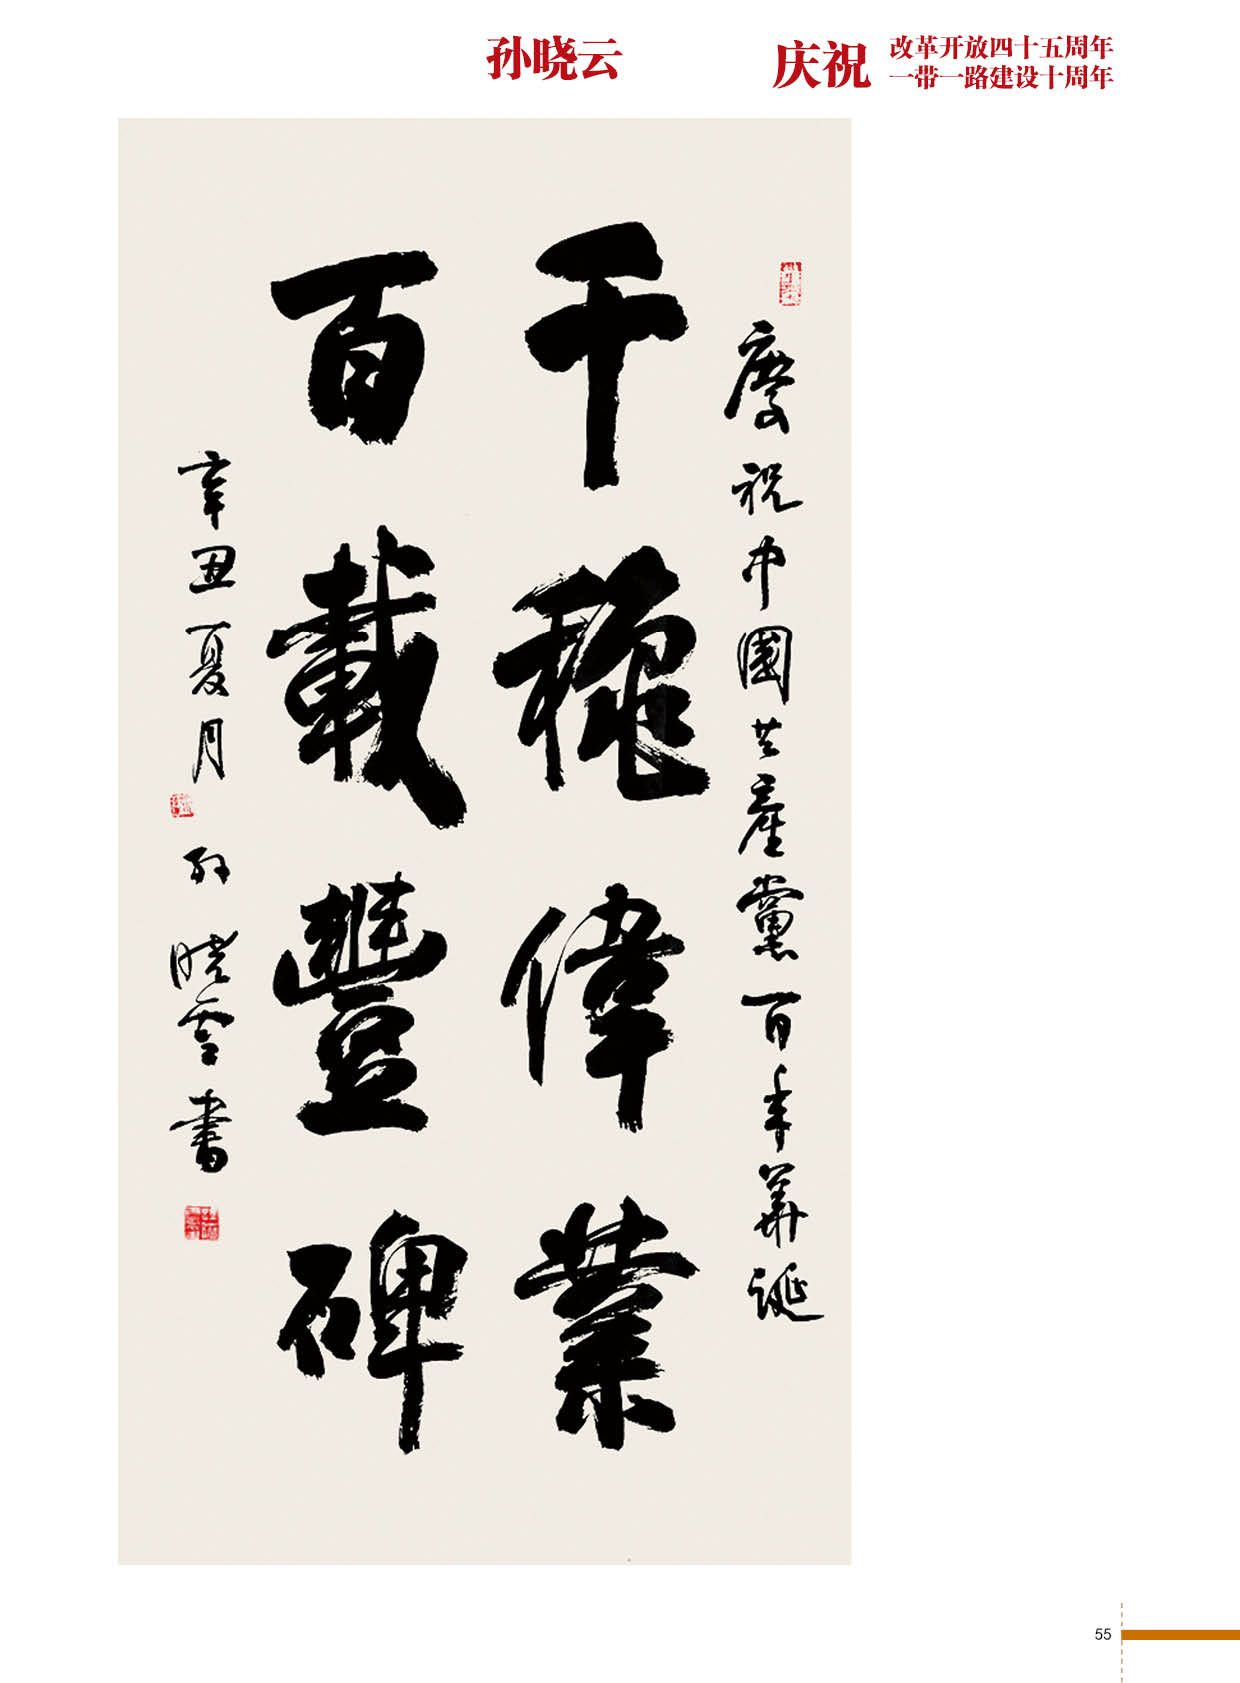 孙晓云
庆祝
改革开放四十五周年
一带一路建设十周年
慶祝中國共產黨百年華誕
千龝偉業
百載豐碑
辛丑夏月
孙晓雲書
55